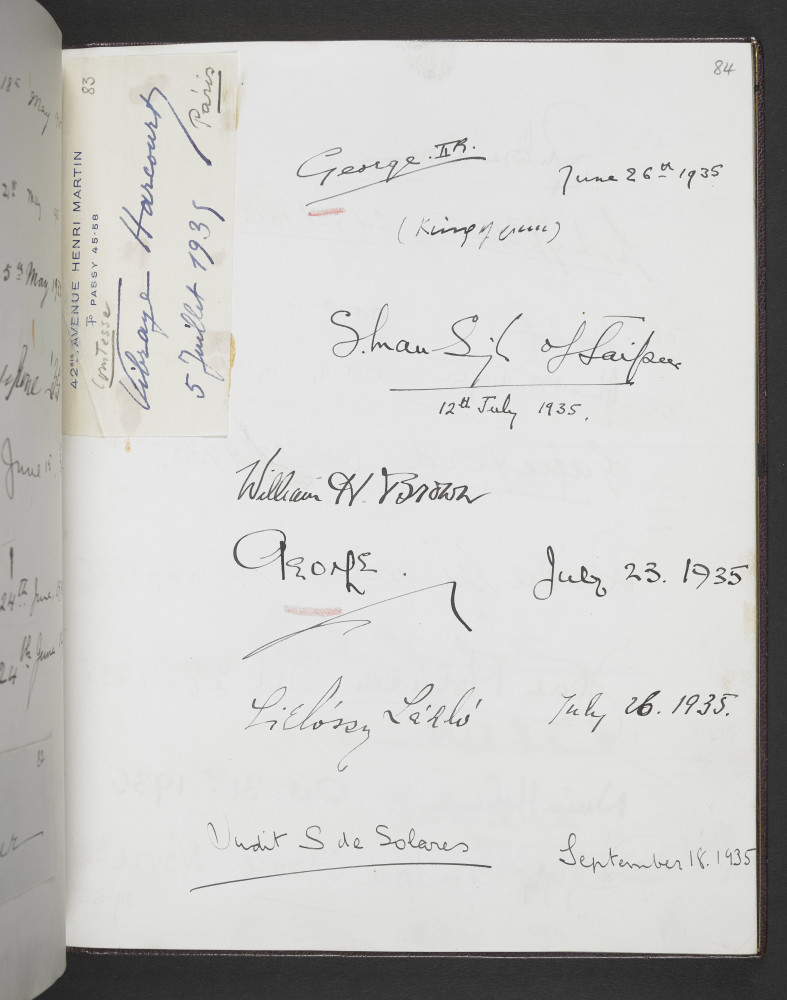 18th May
2nd May
5th May
June 15
24th June
24th June
83
42BIS, AVENUE HENRI MARTIN
TP PASSY 45-58
Comtesse
Vibraye Harcourt
5 Juillet 1935
Paris
84
George IIR.
June 26th 1935
(King of
of Taipur
12th July 1935.
William H. Brown
George.
July 23. 1935
László
July 26. 1935.
S de Solares
September 18. 1935